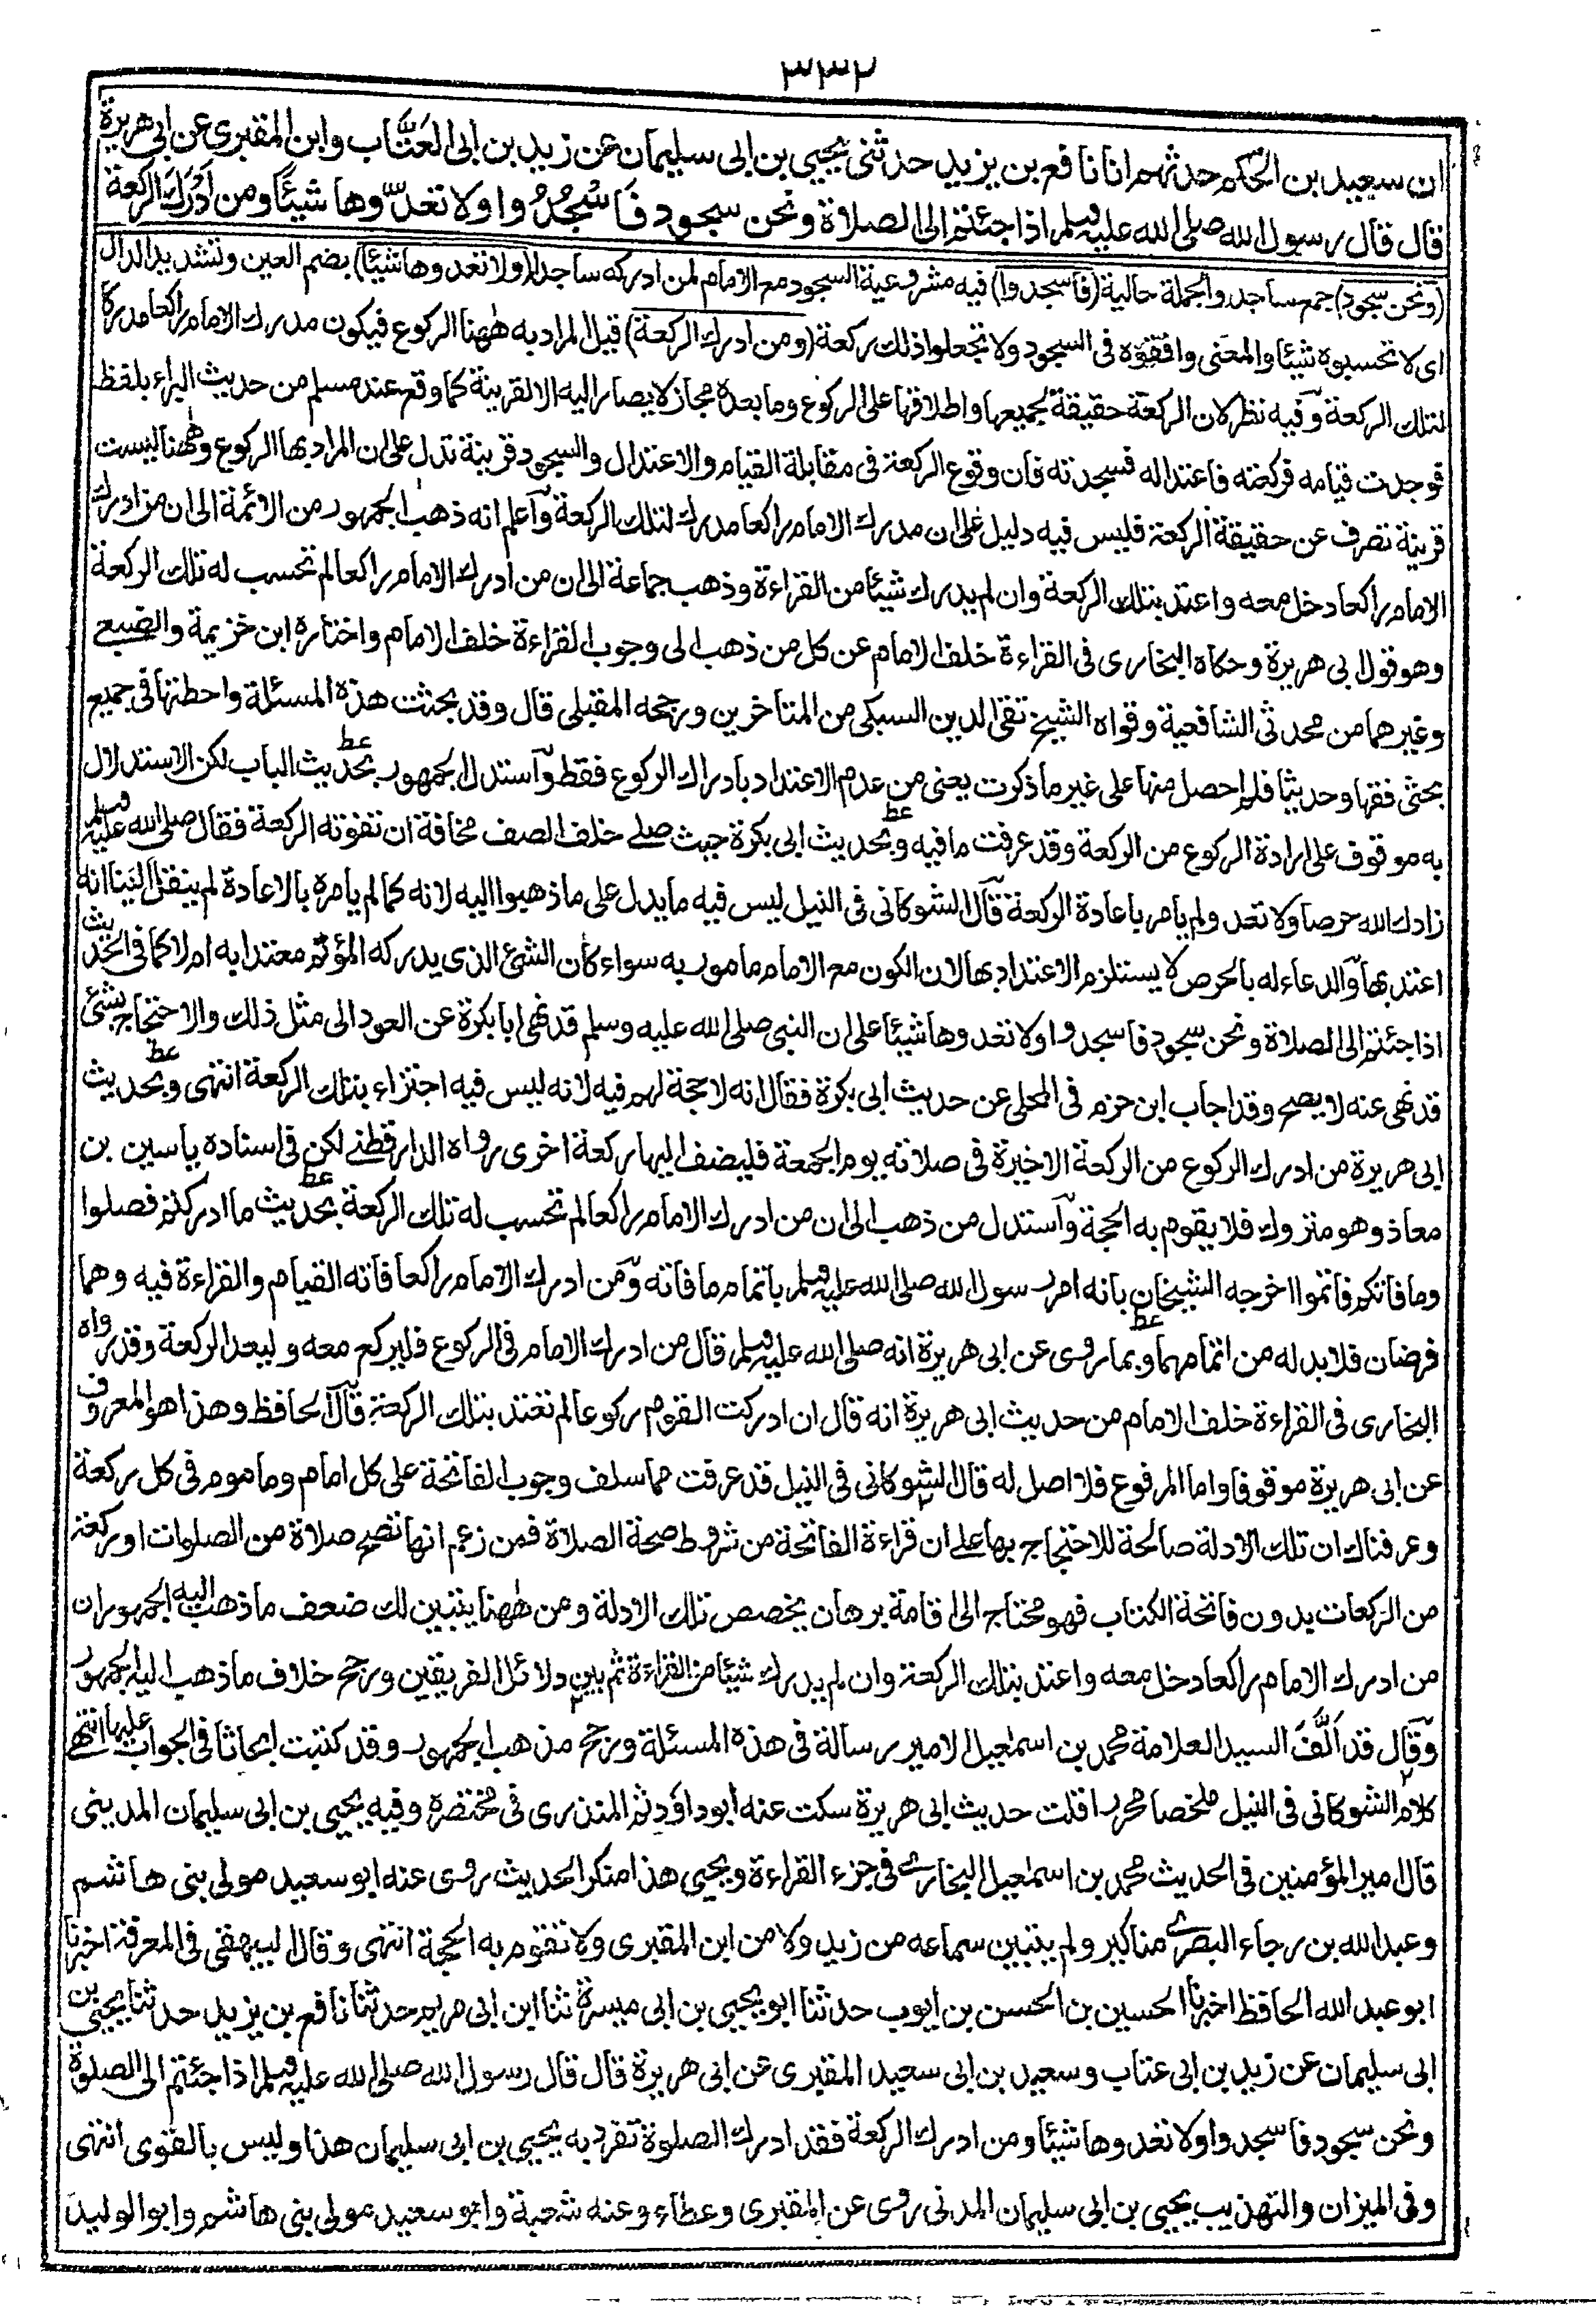 ٣٣٢
ان سعيد بن الحكم حدثهم انا نافع بن يزيد حدثنى يحيى بن ابى سليمان عن زيد بن ابى العَتَّاب وابن المقبرى عن ابى هريرة
قال قال رسول الله صلى الله عليه وسلم اذا جئتم الى الصلاة ونحن سجود فَاسْجُدُوا ولا تعدّوها شيئًا ومن اَدْرَكَ الركعة
(ونحن سجود) جمع ساجد والجملة حالية (فاسجدوا) فيه مشروعية السجود مع الامام لمن ادركه ساجدا (ولا تعدوها شيئا) بضم العين وتشديد الدال
اى لا تحسبوه شيئا والمعنى وافقوه فى السجود ولا تجعلوا ذلك ركعة (ومن ادرك الركعة) قيل المراد به ههنا الركوع فيكون مدرك الامام راكعا مدركا
لتلك الركعة وفيه نظر لان الركعة حقيقة لجميعها واطلاقها على الركوع وما بعده مجاز لا يصار اليه الا لقرينة كما وقع عند مسلم من حديث البراء بلفظ
فوجدت قيامه فركعته فاعتداله فسجدته فان وقوع الركعة فى مقابلة القيام والاعتدال والسجود قرينة تدل على ان المراد بها الركوع وههنا ليست
قرينة تصرف عن حقيقة الركعة فليس فيه دليل على ان مدرك الامام راكعا مدرك لتلك الركعة واعلم انه ذهب الجمهور من الائمة الى ان من ادرك
الامام راكعا دخل معه واعتد بتلك الركعة وان لم يدرك شيئا من القراءة وذهب جماعة الى ان من ادرك الامام راكعا لم تحسب له تلك الركعة
وهو قول ابى هريرة وحكاه البخارى فى القراءة خلف الامام عن كل من ذهب الى وجوب القراءة خلف الامام واختاره ابن خزيمة والضبعى
وغيرهما من محدثى الشافعية وقواه الشيخ تقى الدين السبكى من المتاخرين ورجحه المقبلى قال وقد بحثت هذه المسئلة واحطتها فى جميع
بحثى فقها وحديثا فلم احصل منها على غير ما ذكرت يعنى من عدم الاعتداد بادراك الركوع فقط واستدل الجمهور بحديث الباب لكن الاستدلال
به موقوف على ارادة الركوع من الركعة وقد عرفت ما فيه وبحديث ابى بكرة حيث صلى خلف الصف مخافة ان تفوته الركعة فقال صلى الله عليه وسلم
زادك الله حرصا ولا تعد ولم يامر باعادة الركعة قال الشوكانى فى النيل ليس فيه ما يدل على ما ذهبوا اليه لانه كما لم يامره بالاعادة لم ينقل الينا انه
اعتد بها والدعاء له بالحرص لا يستلزم الاعتداد بها لان الكون مع الامام مامور به سواء كان الشئ الذى يدركه المؤتم معتدا به ام لا كما فى الحديث
اذا جئتم الى الصلاة ونحن سجود فاسجدوا ولا تعدوها شيئا على ان النبى صلى الله عليه وسلم قد نهى ابا بكرة عن العود الى مثل ذلك والاحتجاج بشئ
قد نهى عنه لا يصح وقد اجاب ابن حزم فى المحلى عن حديث ابى بكرة فقال انه لا حجة لهم فيه لانه ليس فيه اجتزاء بتلك الركعة انتهى وبحديث
ابى هريرة من ادرك الركوع من الركعة الاخيرة فى صلاته يوم الجمعة فليضف اليها ركعة اخرى رواه الدارقطنى لكن فى اسناده ياسين بن
معاذ وهو متروك فلا يقوم به الحجة واستدل من ذهب الى ان من ادرك الامام راكعا لم تحسب له تلك الركعة بحديث ما ادركتم فصلوا
وما فاتكم فاتموا اخرجه الشيخان بانه امر رسول الله صلى الله عليه وسلم باتمام ما فاته ومن ادرك الامام راكعا فاته القيام والقراءة فيه وهما
فرضان فلا بد له من اتمامهما وبما روى عن ابى هريرة انه صلى الله عليه وسلم قال من ادرك الامام فى الركوع فليركع معه وليعد الركعة وقد رواه
البخارى فى القراءة خلف الامام من حديث ابى هريرة انه قال ان ادركت القوم ركوعا لم تعتد بتلك الركعة قال الحافظ وهذا هو المعروف
عن ابى هريرة موقوفا واما المرفوع فلا اصل له قال الشوكانى فى النيل قد عرفت مما سلف وجوب الفاتحة على كل امام وماموم فى كل ركعة
وعرفناك ان تلك الادلة صالحة للاحتجاج بها على ان قراءة الفاتحة من شروط صحة الصلاة فمن زعم انها تصح صلاة من الصلوات او ركعة
من الركعات بدون فاتحة الكتاب فهو محتاج الى اقامة برهان يخصص تلك الادلة ومن ههنا يتبين لك ضعف ما ذهب اليه الجمهور ان
من ادرك الامام راكعا دخل معه واعتد بتلك الركعة وان لم يدرك شيئا من القراءة ثم بين دلائل الفريقين ورجح خلاف ما ذهب اليه الجمهور
وقال قد اَلَّفَ السيد العلامة محمد بن اسمعيل الامير رسالة فى هذه المسئلة ورجح مذهب الجمهور وقد كتبت ابحاثا فى الجواب عليها انتهى
كلام الشوكانى فى النيل ملخصا محررا قلت حديث ابى هريرة سكت عنه ابو داؤد ثم المنذرى فى مختصره وفيه يحيى بن ابى سليمان المدينى
قال امير المؤمنين فى الحديث محمد بن اسمعيل البخارى فى جزء القراءة ويحيى هذا منكر الحديث روى عنه ابو سعيد مولى بنى هاشم
وعبد الله بن رجاء البصرى مناكير ولم يتبين سماعه من زيد ولا من ابن المقبرى ولا تقوم به الحجة انتهى وقال البيهقى فى المعرفة اخبرنا
ابو عبد الله الحافظ اخبرنا الحسين بن الحسن بن ايوب حدثنا ابو يحيى بن ابى ميسرة ثنا ابن ابى مريم حدثنا نافع بن يزيد حدثنا يحيى بن
ابى سليمان عن زيد بن ابى عتاب وسعيد بن ابى سعيد المقبرى عن ابى هريرة قال قال رسول الله صلى الله عليه وسلم اذا جئتم الى الصلوة
ونحن سجود فاسجدوا ولا تعدوها شيئا ومن ادرك الركعة فقد ادرك الصلوة تفرد به يحيى بن ابى سليمان هذا وليس بالقوى انتهى
وفى الميزان والتهذيب يحيى بن ابى سليمان المدنى روى عن المقبرى وعطاء وعنه شعبة وابو سعيد مولى بنى هاشم وابو الوليد